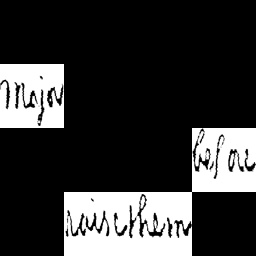 Major
before
raise them